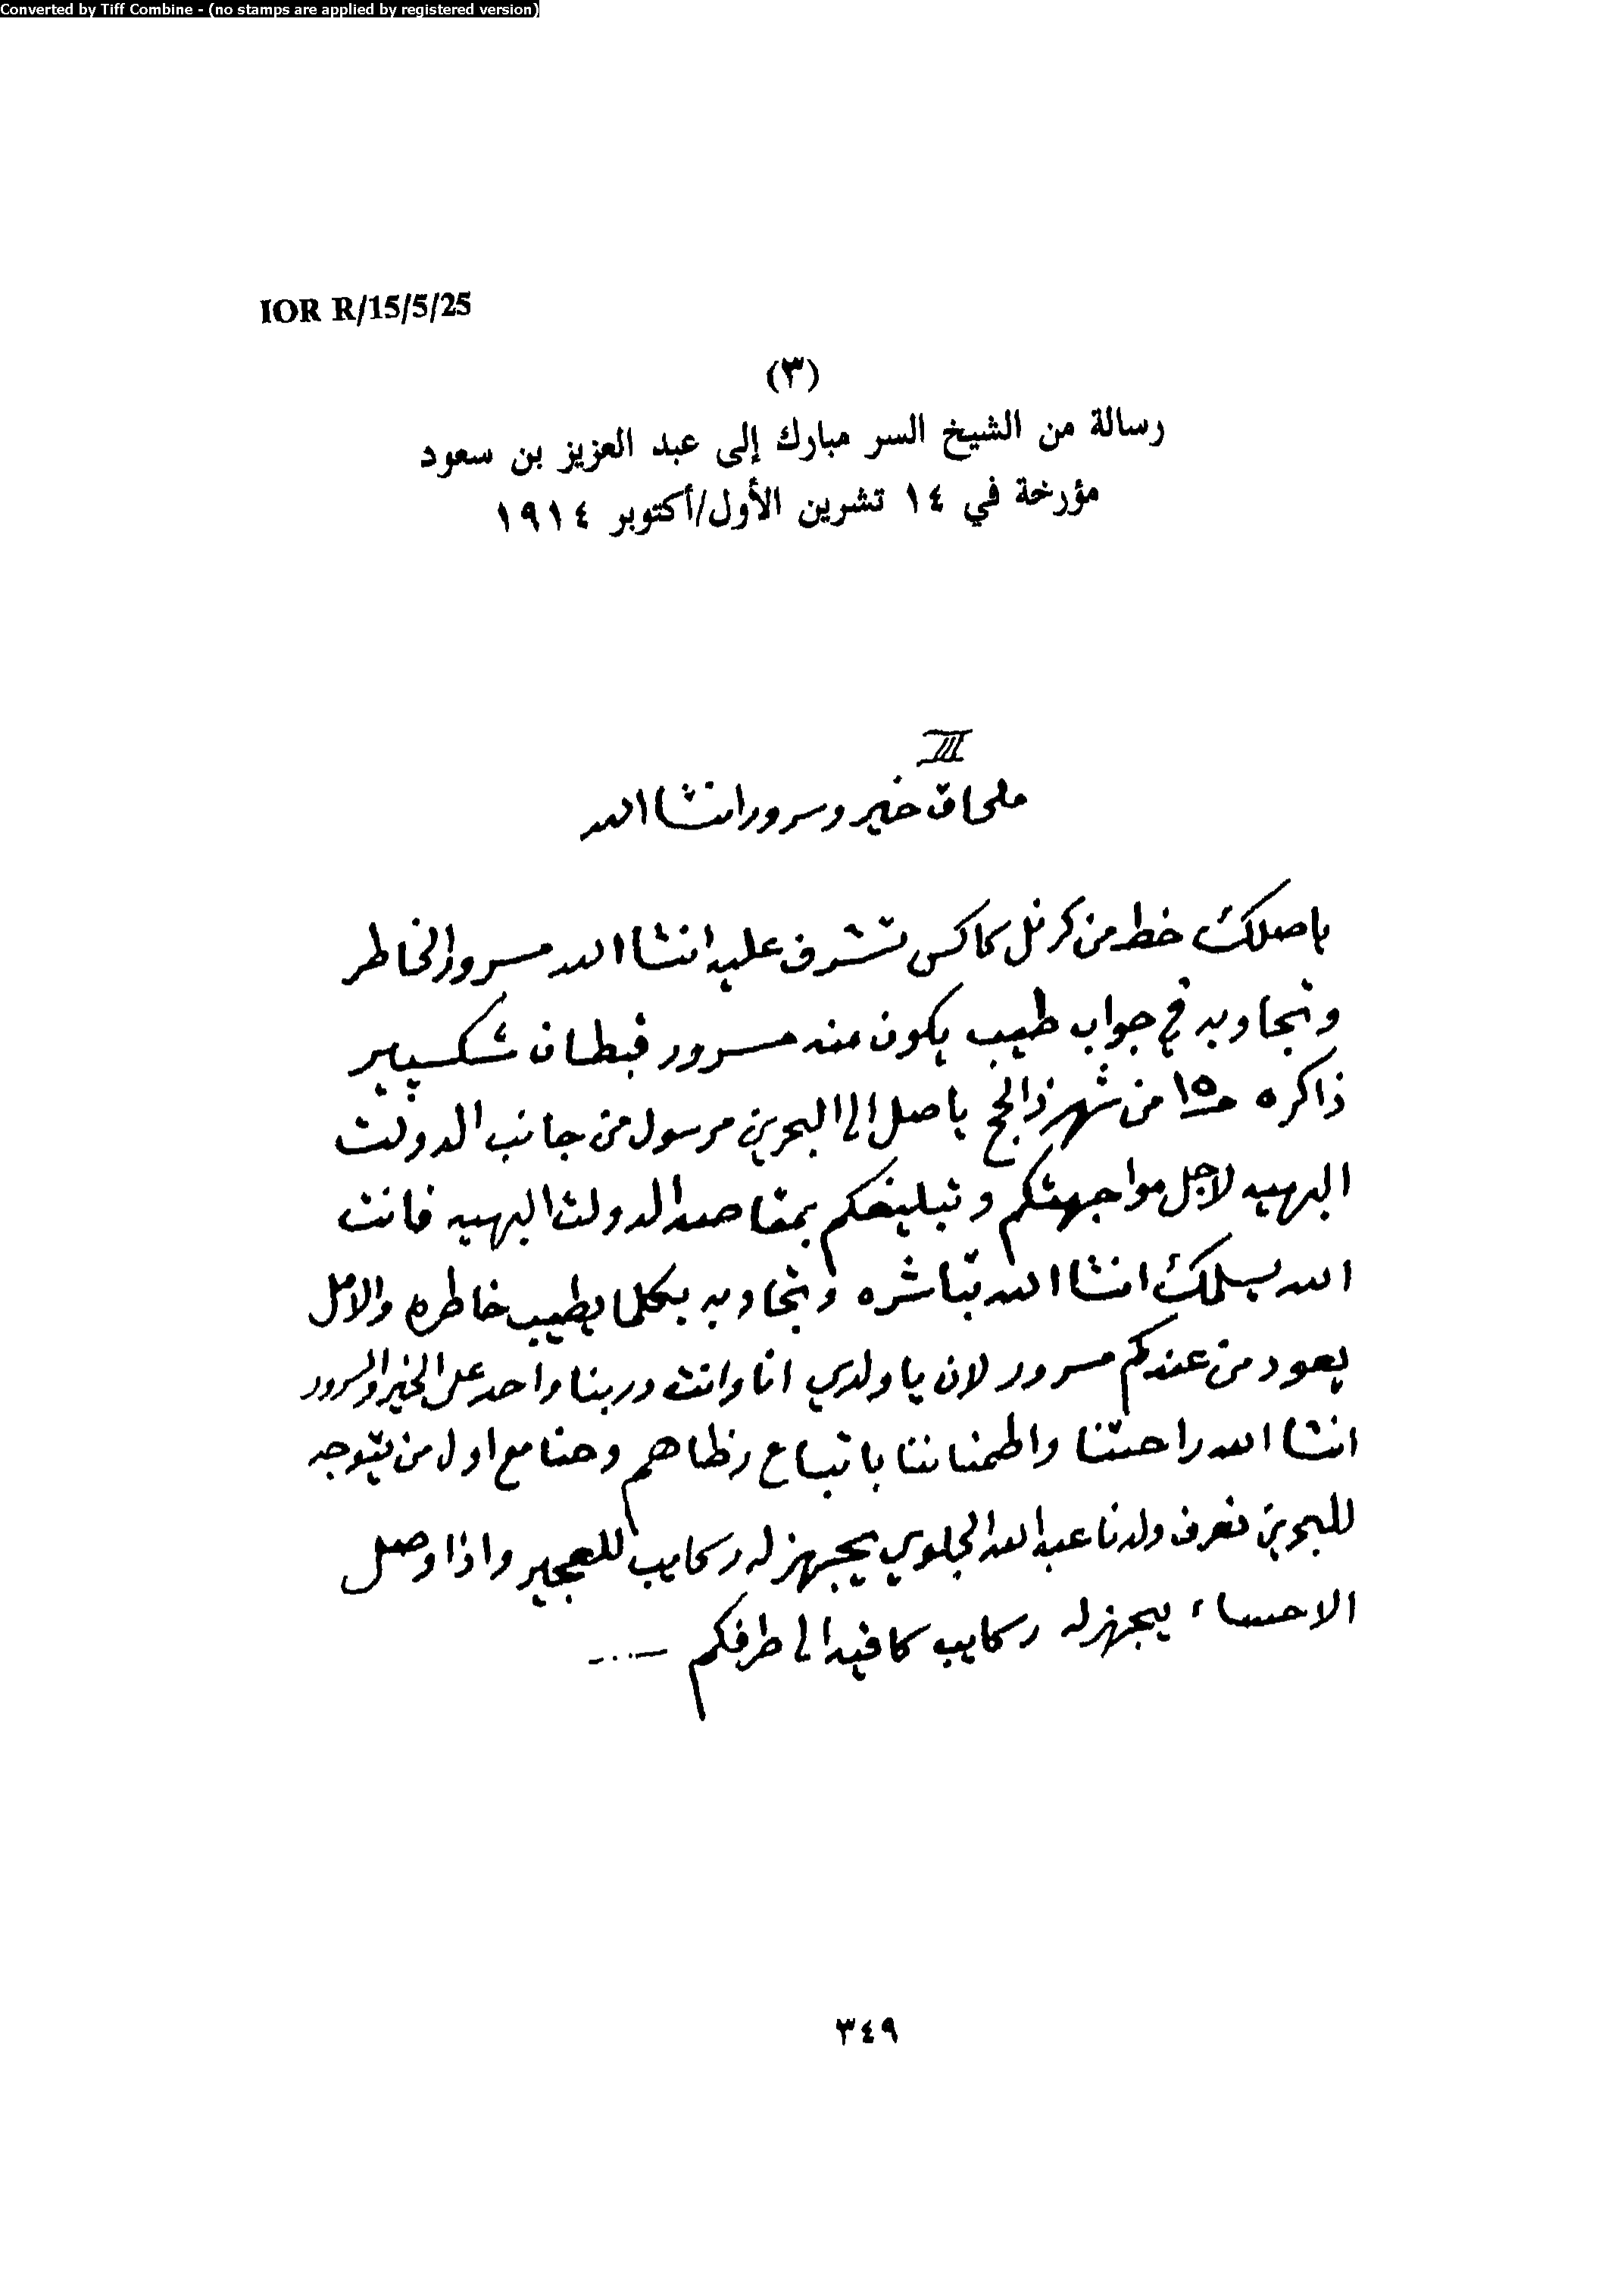 Converted by Tiff Combine - (no stamps are applied by registered version)
IOR R/15/5/25
(٣)
رسالة من الشيخ السر مبارك إلى عبد العزيز بن سعود
مؤرخة في ١٤ تشرين الأول/أكتوبر ١٩١٤
III
ملحاق خير وسرور انشا الله
ياصلك خط من كرنل كاكس تشرف عليه انشا الله مسرور الخاطر
وتجاوبه في جواب طيب يكون منه مسرور قبطان شكسپير
ذاكره ١٥ من شهر ذالحج ياصل الا البحرين مرسول من جانب الدولت
البهيه لاجل مواجهتكم وتبليغكم بمقاصد الدولت البهيه فانت
الله يسلمك انشا الله تباشره وتجاوبه بكلما يطيب خاطره والامل
يعود من عندكم مسرور لان يا ولدي انا وانت دربنا واحد على الخير والسرور
انشا الله راحتنا واطمناننا باتباع رظاهم وحنا مع اول من يتوجه
للبحرين نعرف ولدنا عبد الله الجلوي يجهز له ركايب للعجير واذا وصل
الاحساء يجهز له ركايب كافيه الى طرفكم
٣٤٩